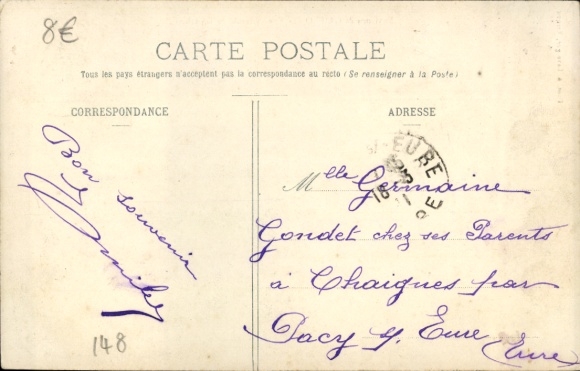 8€
CARTE POSTALE
Tous les pays étrangers n'acceptent pas la correspondance au recto (Se renseigner à la Poste)
CORRESPONDANCE
ADRESSE
Bon souvenir
148
EURE
Mlle Germaine
Gondet chez ses Parents
à Chaignes par
Pacy s/ Eure
(Eure